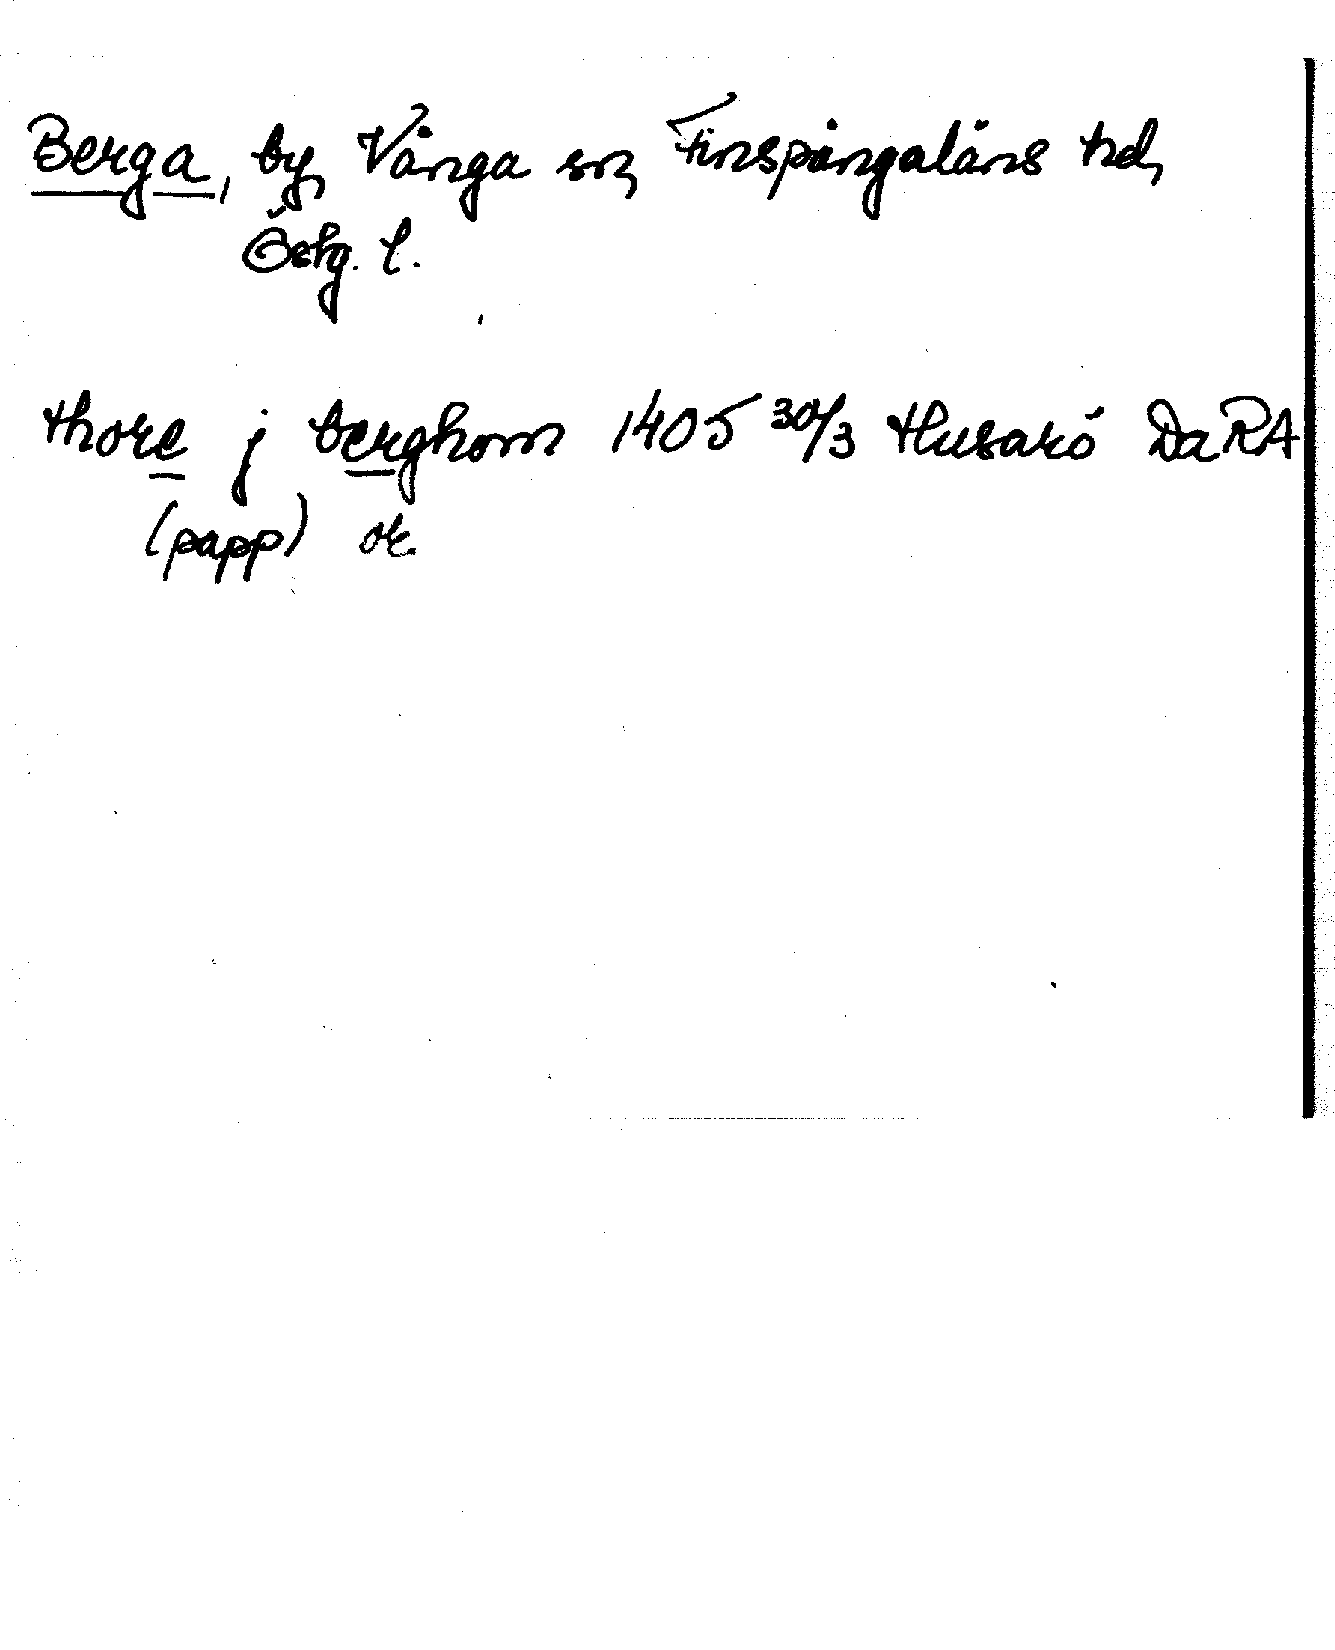 Berga, by, Vånga sn, Finspångaläns hd,
Östg. l.
thore j berghom 1405 30/3 Husarö DaRA
(papp) or.